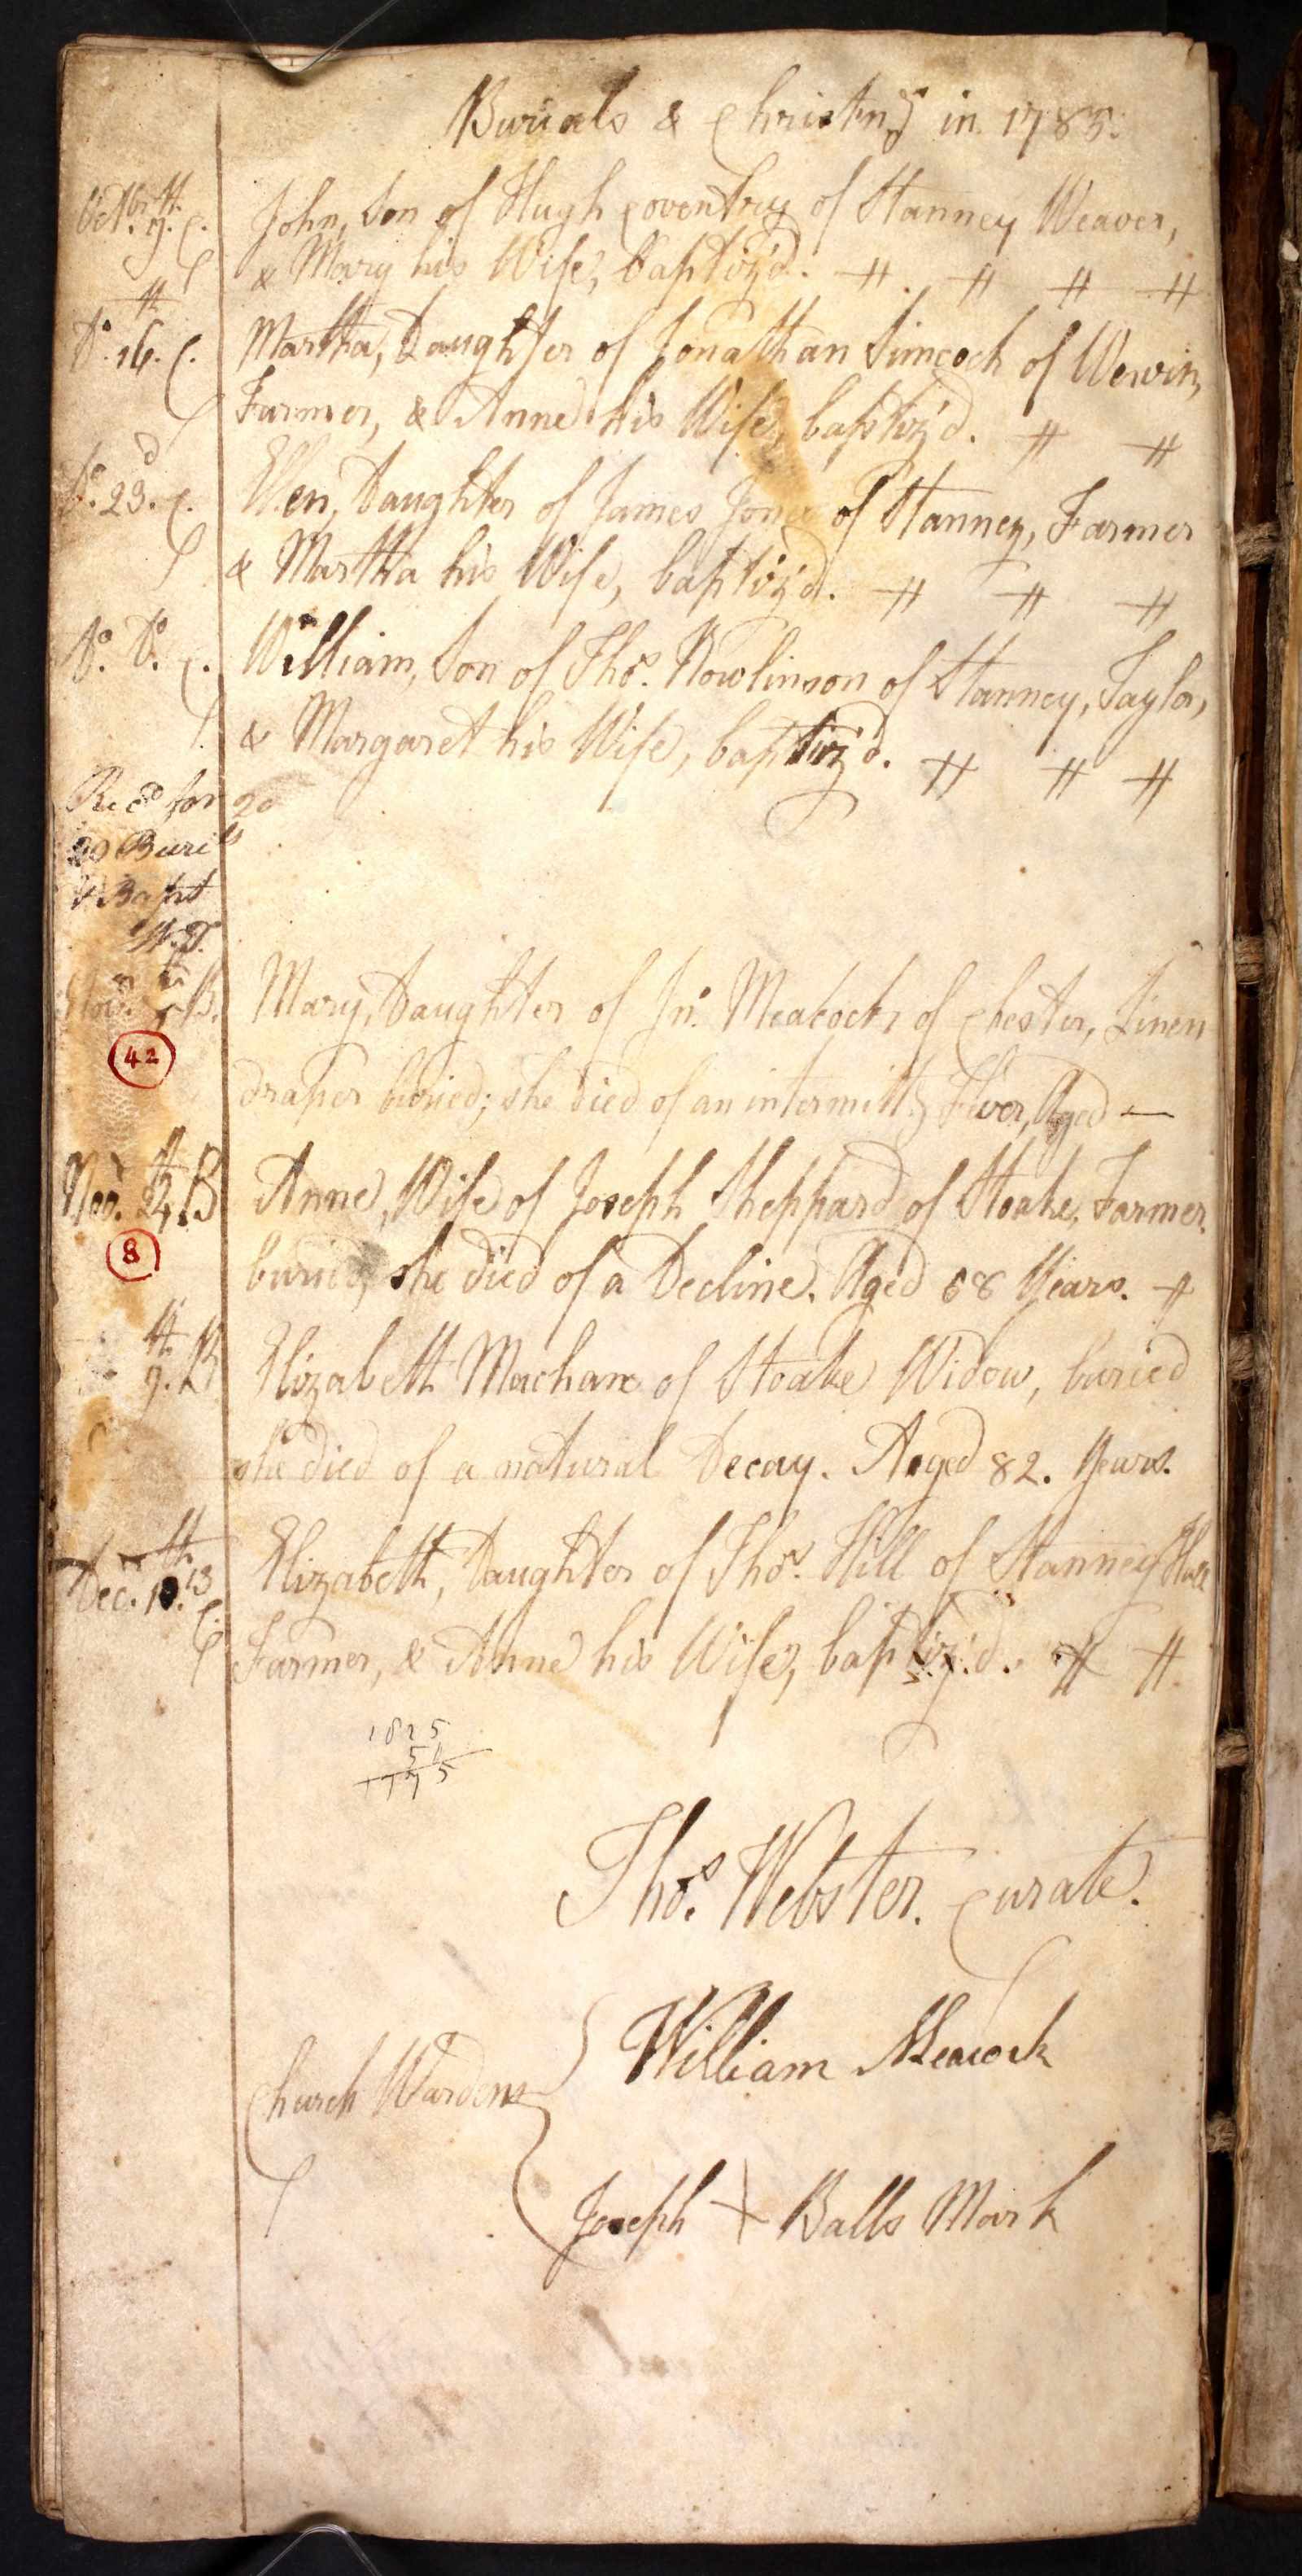 Burials & Christngs in 1785.
Octbr. 9.th C. John, Son of Hugh Coventry of Stanney Weaver,
& Mary his Wife, baptiz'd.
Do. 16.th C. Martha, Daughter of Jonathan Simcock of Wervin,
Farmer, & Anne his Wife, baptiz'd.
Do. 23.d C. Ellen, Daughter of James Jones of Stanney, Farmer
& Martha his Wife, baptiz'd.
Do. Do. C. William, Son of Thos. Rowlinson of Stanney, Taylor,
& Margaret his Wife, baptiz'd.
Recd for 20
20 Burils
Bapt
Novr. B. Mary, Daughter of Jno. Meacock, of Chester, Linen
42
draper buried; she died of an intermittg Fever, Aged —
Novr. B Anne, Wife of Joseph Sheppard of Stoake, Farmer.
8
buried, she died of a Decline. Aged 58 Years.
9.th B Elizabeth Machan of Stoake Widow, buried
she died of a natural Decay. Aged 82. Years.
Dec. 13th C. Elizabeth, Daughter of Thos. Hill of Stanney Hall
Farmer, & Anne his Wife, baptiz'd.
1825
50
1775
Thos. Webster. Curate.
William Meacock
Church Wardens
Joseph + Balls Mark